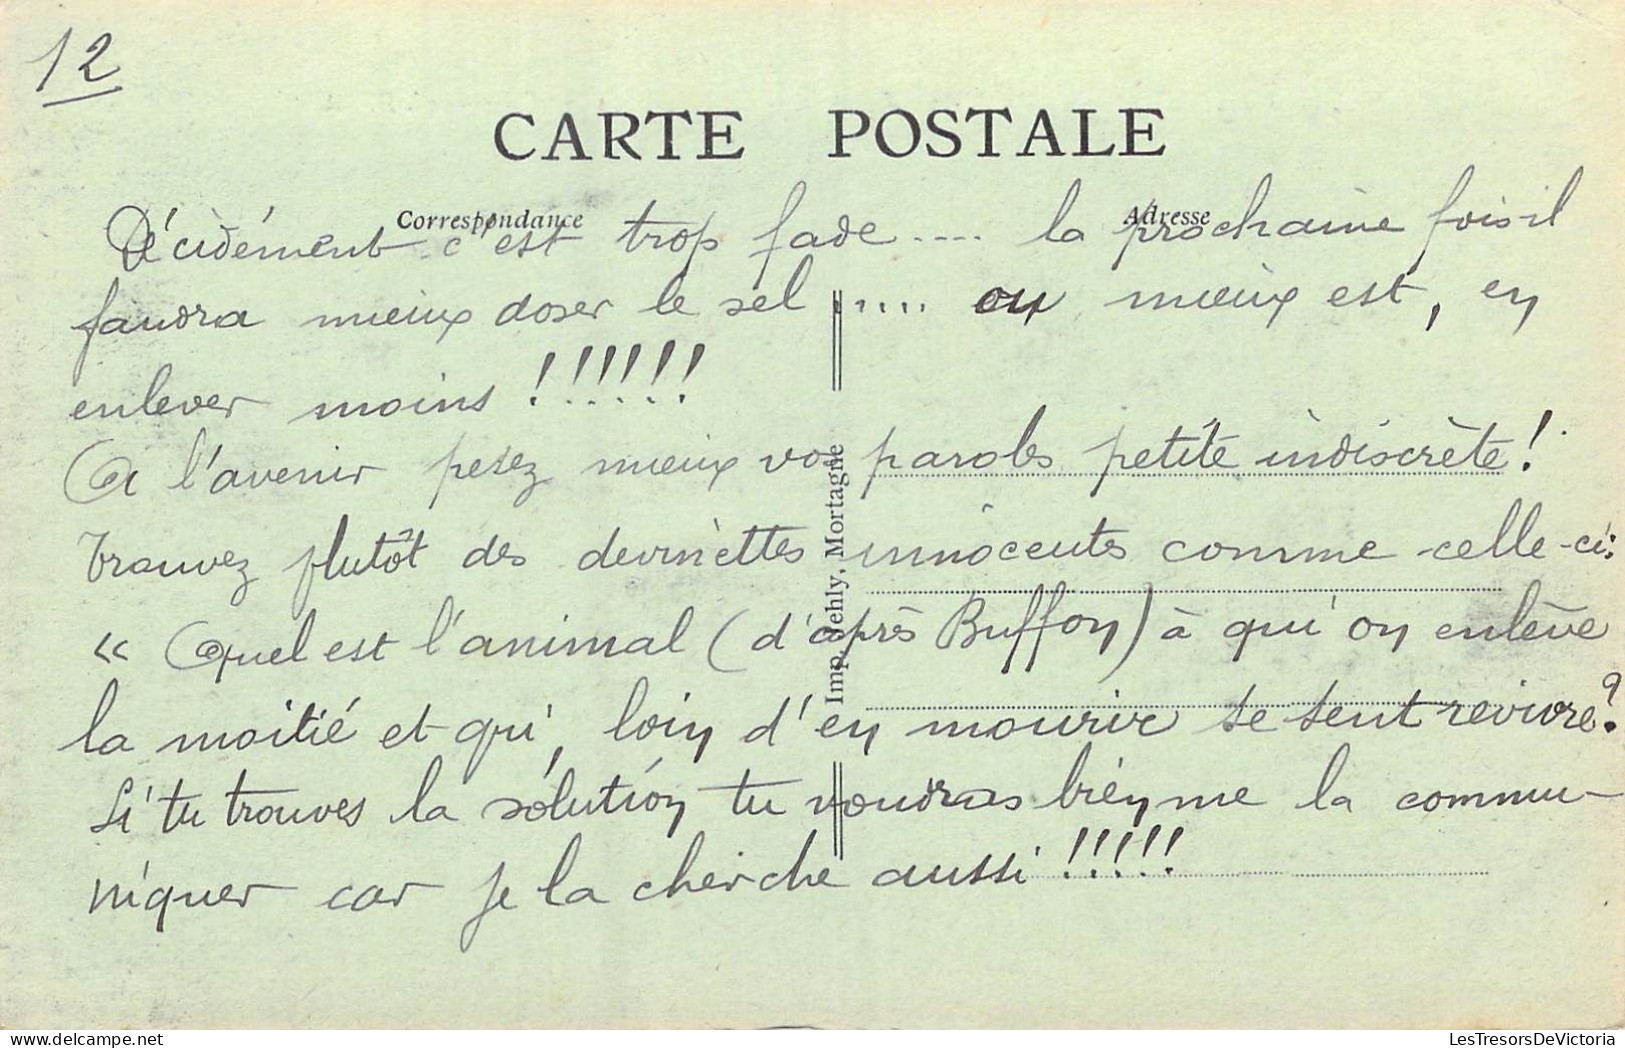 12
CARTE POSTALE
Correspondance
Adresse
Décidément c'est trop fade .... la prochaine fois il
faudra mieux doser le sel ..... ou mieux est, en
enlever moins !!!!!!
A l'avenir pesez mieux vos paroles petite indiscrète!
Trouvez plutôt des devinettes innocentes comme celle-ci:
« Quel est l'animal (d'après Buffon) à qui on enlève
la moitié et qui, loin d'en mourir se sent revivre?
Si tu trouves la solution tu voudras bien me la commu-
niquer car je la cherche aussi !!!!!
Imp. Jehly, Mortagne
LesTresorsDeVictoria